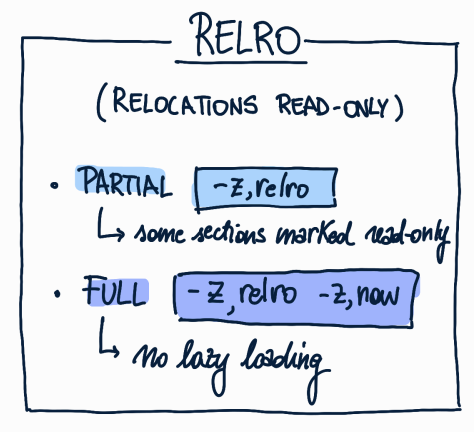 RELRO
(RELOCATIONS READ-ONLY)
• PARTIAL -z,relro
↳ some sections marked read-only
• FULL -z,relro -z,now
↳ no lazy loading